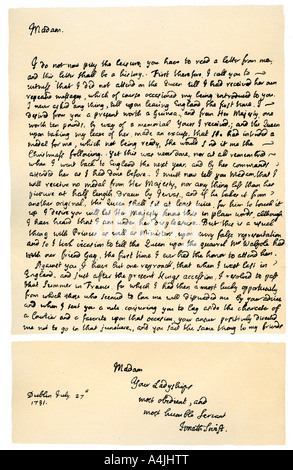 Madam.
I do not now pity the leisure you have to read a letter from me,
and this letter shall be a history. First therefore I call you to
witness that I did not attend on the Queen till I had received her own
repeated messages, which of course occasioned my being introduced to you.
I never asked any thing, till upon leaving England the first time, I
desired from you a present worth a guinea, and from Her Majesty one
worth ten pounds, by way of a memorial. Yours I received; and the Queen
upon taking my leave of her, made an excuse, that she had intended a
medal for me, which not being ready, she would send it me the
Christmas following. Yet this was never done, nor at all remembred
when I went back to England the next year, and by her commands
attended her as I had done before. I must now tell you Madam, that I
will receive no medal from Her Majesty, nor any thing less than her
picture at half length, drawn by Jervas, and if he takes it from
another original, the Queen shall sit at least twice, for him to touch it
up. I desire you will let Her Majesty know this in plain words, although
I have heard that I am under her displeasure. But this is a usual
thing with Princes as well as Ministers upon every false representation
and so I took occasion to tell the Queen upon the quarrel Mr. Walpole had
with our friend Gay, the first time I ever had the honor to attend her.
Against you I have but one reproach, that when I was last in
England, and just after the present Kings accession, I resolved to pass
that Summer in France, for which I had then a most lucky opportunity
from which those who seemed to love me well dissuaded me by your advice
and when I sent you a note conjuring you to lay aside the character of
a Courtier and a favorite upon that occasion, your answer positively directed
me not to go in that juncture, and you said the same thing to my friends
Madam
Your Ladyships
most obedient, and
most humble Servant
Jonath: Swift.
Dublin July 27th
1731.
alamy
A4JHTT